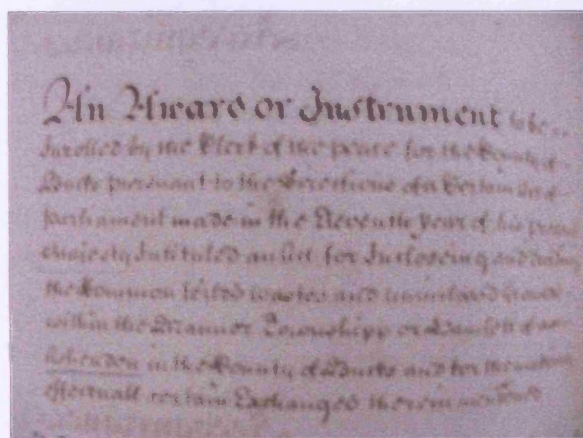 An Award or Instrument to be
Inrolled by the Clerk of the peace for the County of
Bucks pursuant to the Directions of a Certain Act of
parliament made in the Eleventh year of his present
Majesty Intituled an Act for Inclosing and
the Common feilds wastes and ground
within the Mannor Townshipp or Hamlett of
Ashendon in the County of Bucks and for the making
effectuall certain Exchanges therein mentioned